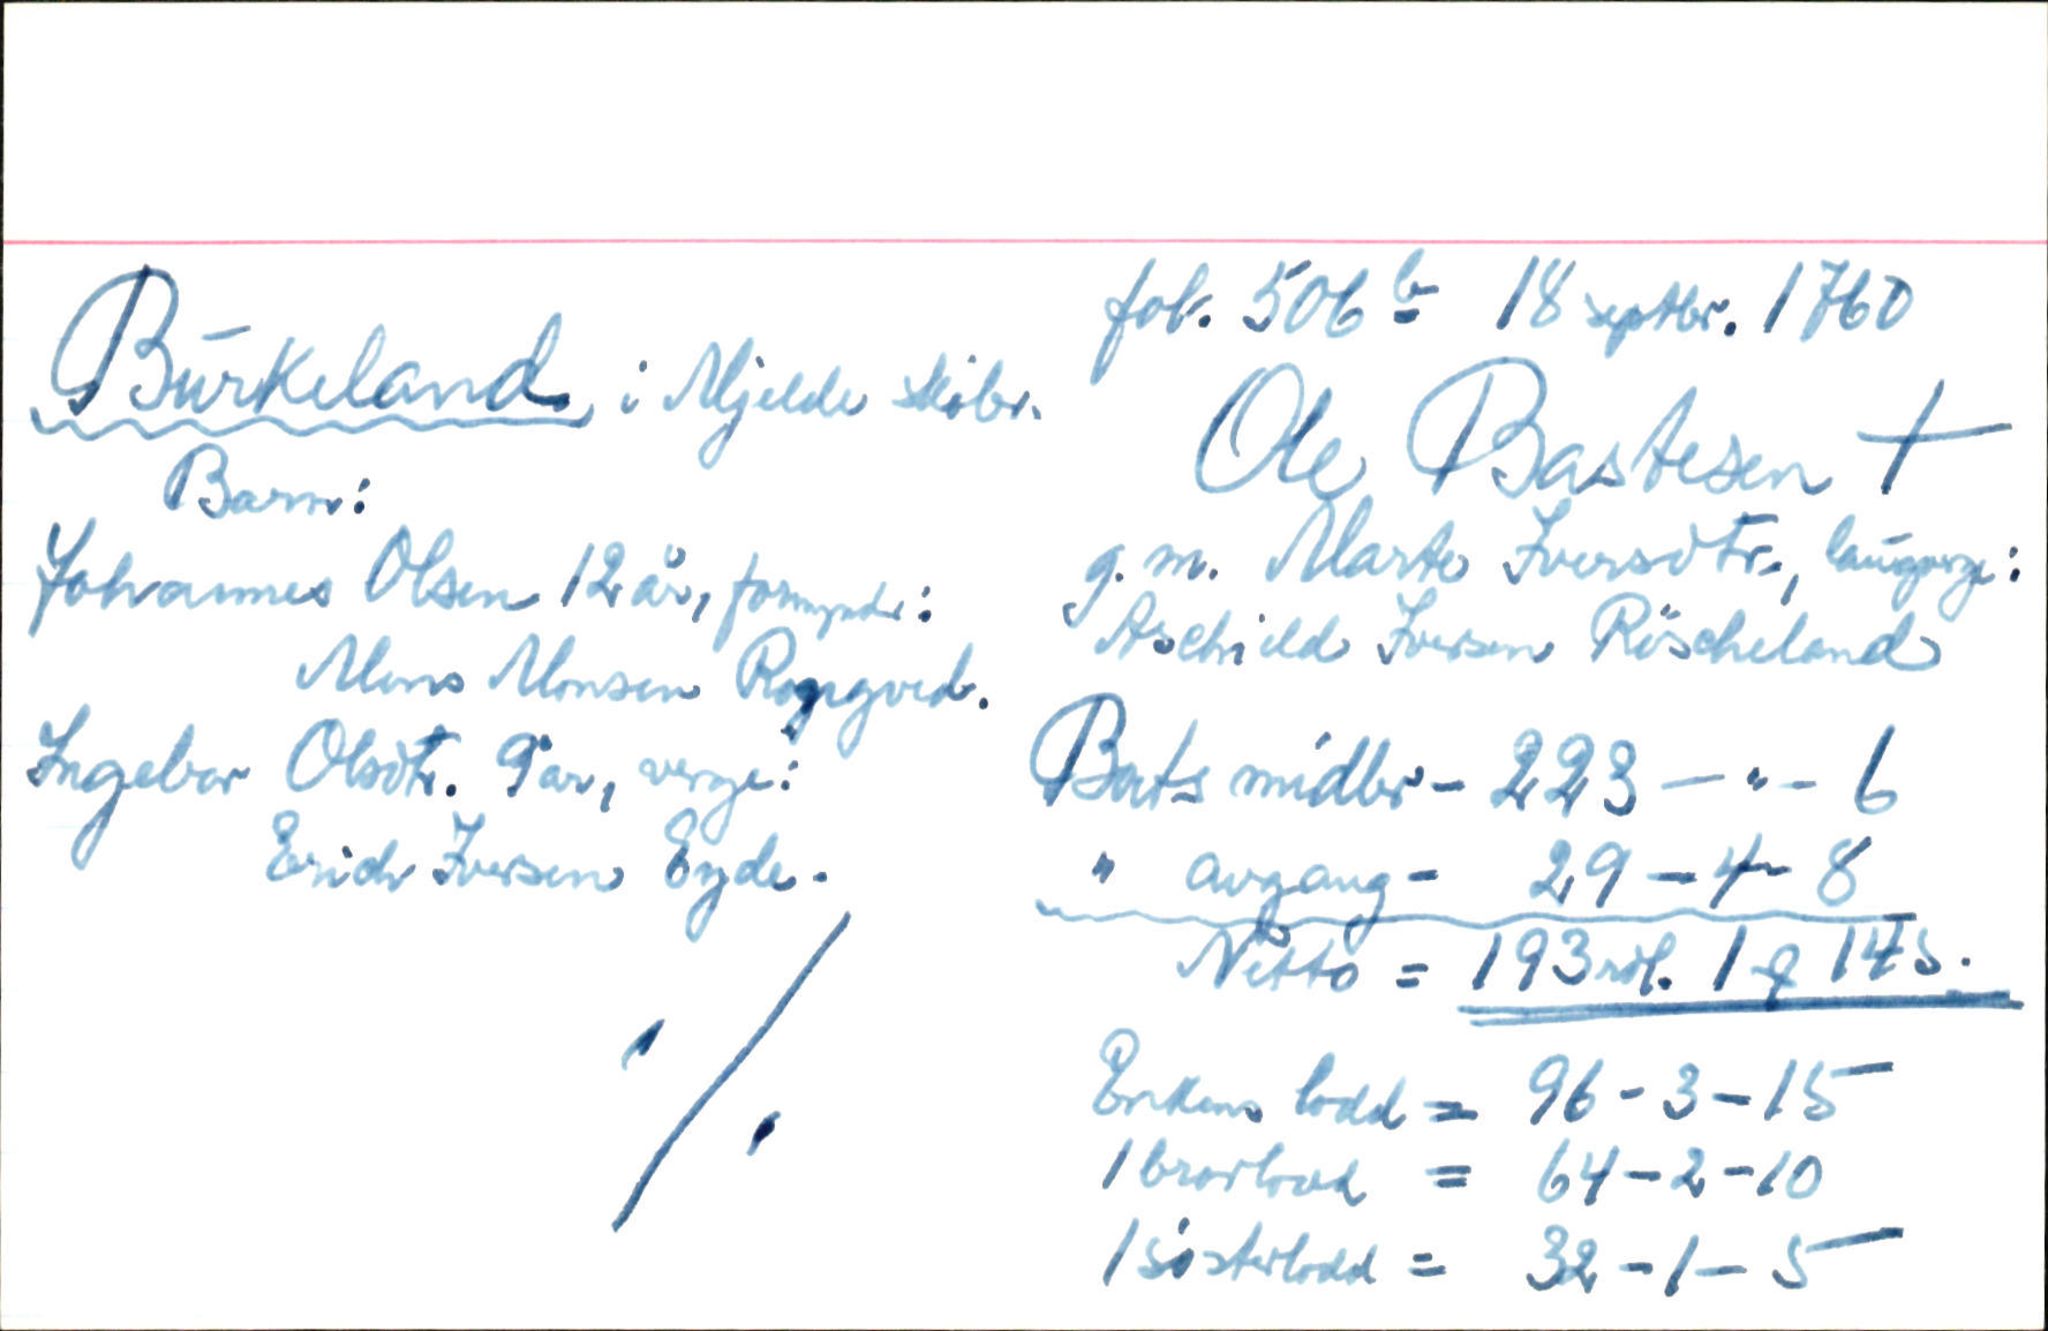 Burkeland i Mjelde skibr.
Barn:
Johannes Olsen 12 år, formyndr:
Mons Monsen Rogngved.
Ingebor Olsdtr. 9 år, verge:
Erich Iversen Eyde.
fol. 506 b 18 septbr. 1760
Ole Bastesen +
g. m. Marte Iversdtr., laugverge:
Aschield Iversen Röscheland
Boets midler - 223 - " - 6
" avgang - 29 - 4 - 8
Netto = 193 rdl. 1 q 14 s.
Enkens lodd = 96 - 3 - 15
1 brorlodd = 64 - 2 - 10
1 sösterlodd = 32 - 1 - 5